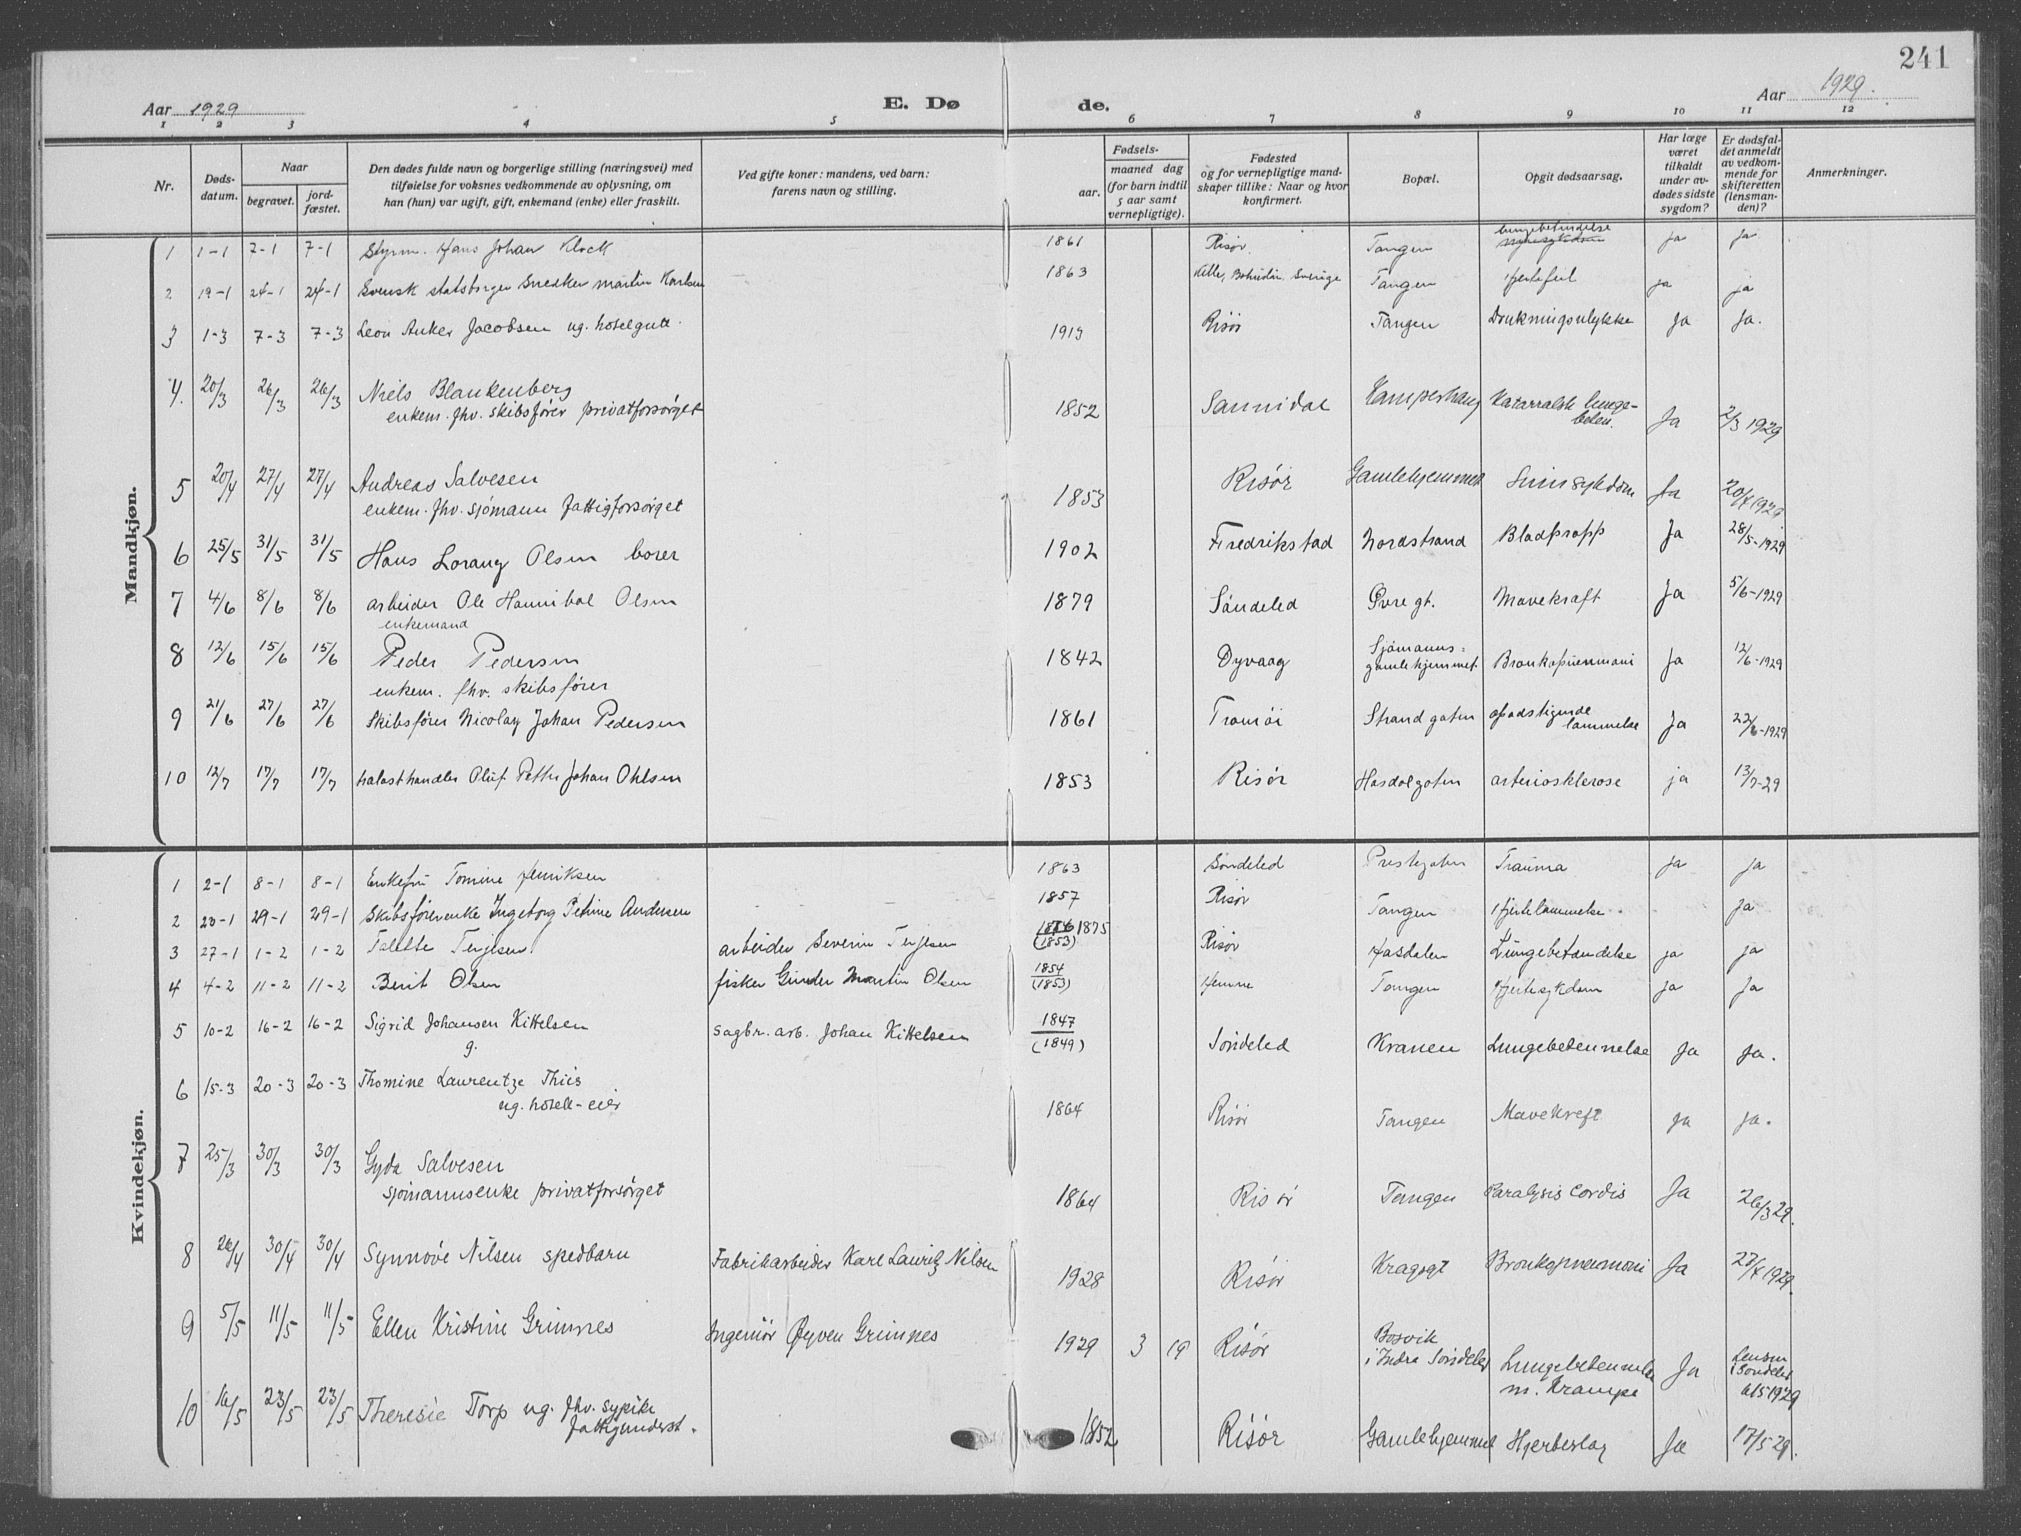 241
Aar 1929
E. Dø de.
Aar 1929.
1 2 3 4 5 6 7 8 9 10 11 12
Nr.
Døds-datum.
Naar
begravet.
jord-fæstet.
Den dødes fulde navn og borgerlige stilling (næringsvei) med
tilføielse for voksnes vedkommende av oplysning, om
han (hun) var ugift, gift, enkemand (enke) eller fraskilt.
Ved gifte koner: mandens, ved barn:
farens navn og stilling.
Fødsels-
aar.
maaned dag
(for barn indtil
5 aar samt
vernepligtige).
Fødested
og for vernepligtige mand-
skaper tillike: Naar og hvor
konfirmert.
Bopæl.
Opgit dødsaarsag.
Har læge
været
tilkaldt
under av-
dødes sidste
sygdom?
Er dødsfal-
det anmeldt
av vedkom-
mende for
skifteretten
(lensman-
den)?
Anmerkninger.
Mandkjøn.
1 1-1 7-1 7-1 Styrm. Hans Johan Klock 1861 Risør. Tangen lungebetændelse ja ja
2 19-1 24-1 24-1 Svensk statsborger Snedker Martin Karlsen 1863 Kille, Bohuslän. Sverige Tangen Hjertefeil ja ja
3 1-3 7-3 7-3 Leon Anker Jacobsen ug. hotelgutt. 1913 Risør Tangen Drukningsulykke Ja Ja.
4. 20/3 26/3 26/3 Niels Blankenberg
enkem. fhv. skibsfører privatforsørget 1852 Sannidal Kamperhaug Katarralsk lunge-
beten. Ja 2/3 1929
5 20/4 27/4 27/4 Andreas Salvesen
enkem. fhv. sjømann fattigforsørget 1853 Risør Gamlehjemmet Sinnsykdom Ja 20/4 1929
6 25/5 31/5 31/5 Hans Lorang Olsen borer 1902 Fredrikstad Nordstrand Blodpropp Ja 28/5-1929
7 4/6 8/6 8/6 arbeider Ole Hannibal Olsen
enkemand 1879 Søndeled Øvre gt. Mavekraft Ja 5/6-1929
8 12/6 15/6 15/6 Peder Pedersen
enkem. fhv. skibsfører 1842 Dyvaag Sjømanns-
gamlehjemmet Bronkopneumoni Ja 12/6-1929
9 21/6 27/6 27/6 Skibsfører Nicolay Johan Pedersen 1861 Tromøi Strandgaten opadstigende
lammelse Ja 22/6-1929
10 12/7 17/7 17/7 Trælasthandler Oluf Petter Johan Ohlsen 1853 Risør Hasdalgaten arteriosklerose ja 13/7-29
Kvindekjøn.
1 2-1 8-1 8-1 Enkefru Tomine Henriksen 1863 Søndeled Prestegaten Trauma ja ja
2 23-1 29-1 29-1 Skibsførerenke Ingeborg Petrine Andersen 1857 Risør Tangen Hjertelammelse. ja
3 27-1 1-2 1-2 Talette Terjesen. arbeider Severin Terjesen 1875
(1853) Risør Hasdalen Lungebetændelse ja ja
4 4-2 11-2 11-2 Berit Olsen fisker Gunder Martin Olsen 1854
(1853) Hemne Tangen Hjertesykdom ja Ja
5 10-2 16-2 16-2 Sigrid Johansen Kittelsen
g. sagbr. arb. Johan Kittelsen 1847
(1849) Søndeled Kranen Lungebetennelse Ja Ja.
6 15-3 20-3 20-3 Thomine Laurentze Thiis
ug. hotell-eier 1864 Risør Tangen Mavekreft ja ja.
7 25/3 30/3 30/3 Gyda Salvesen
sjømannsenke privatforsørget 1864 Risør Tangen Paralysis cordis Ja 26/3 29.
8 26/4 30/4 30/4 Synnøve Nilsen spedbarn Fabrikarbeider Karl Lauritz Nilsen 1928 Risør Kragsgt Bronkopneumoni Ja 27/4 1929.
9 5/5 11/5 11/5 Ellen Kristine Grimnes Ingeniør Øyven Grimnes 1929 3 19 Risør Bosvik
i Indre Søndeled Lungebetennelse
m. Krampe Ja Lensm
i Søndeled
6/5 1929
10 16/5 23/5 23/5 Theresie Torp ug. fhv. sypike
fattigunderst. 1852 Risør Gamlehjemmet Hjerteslag Ja 17/5 29.